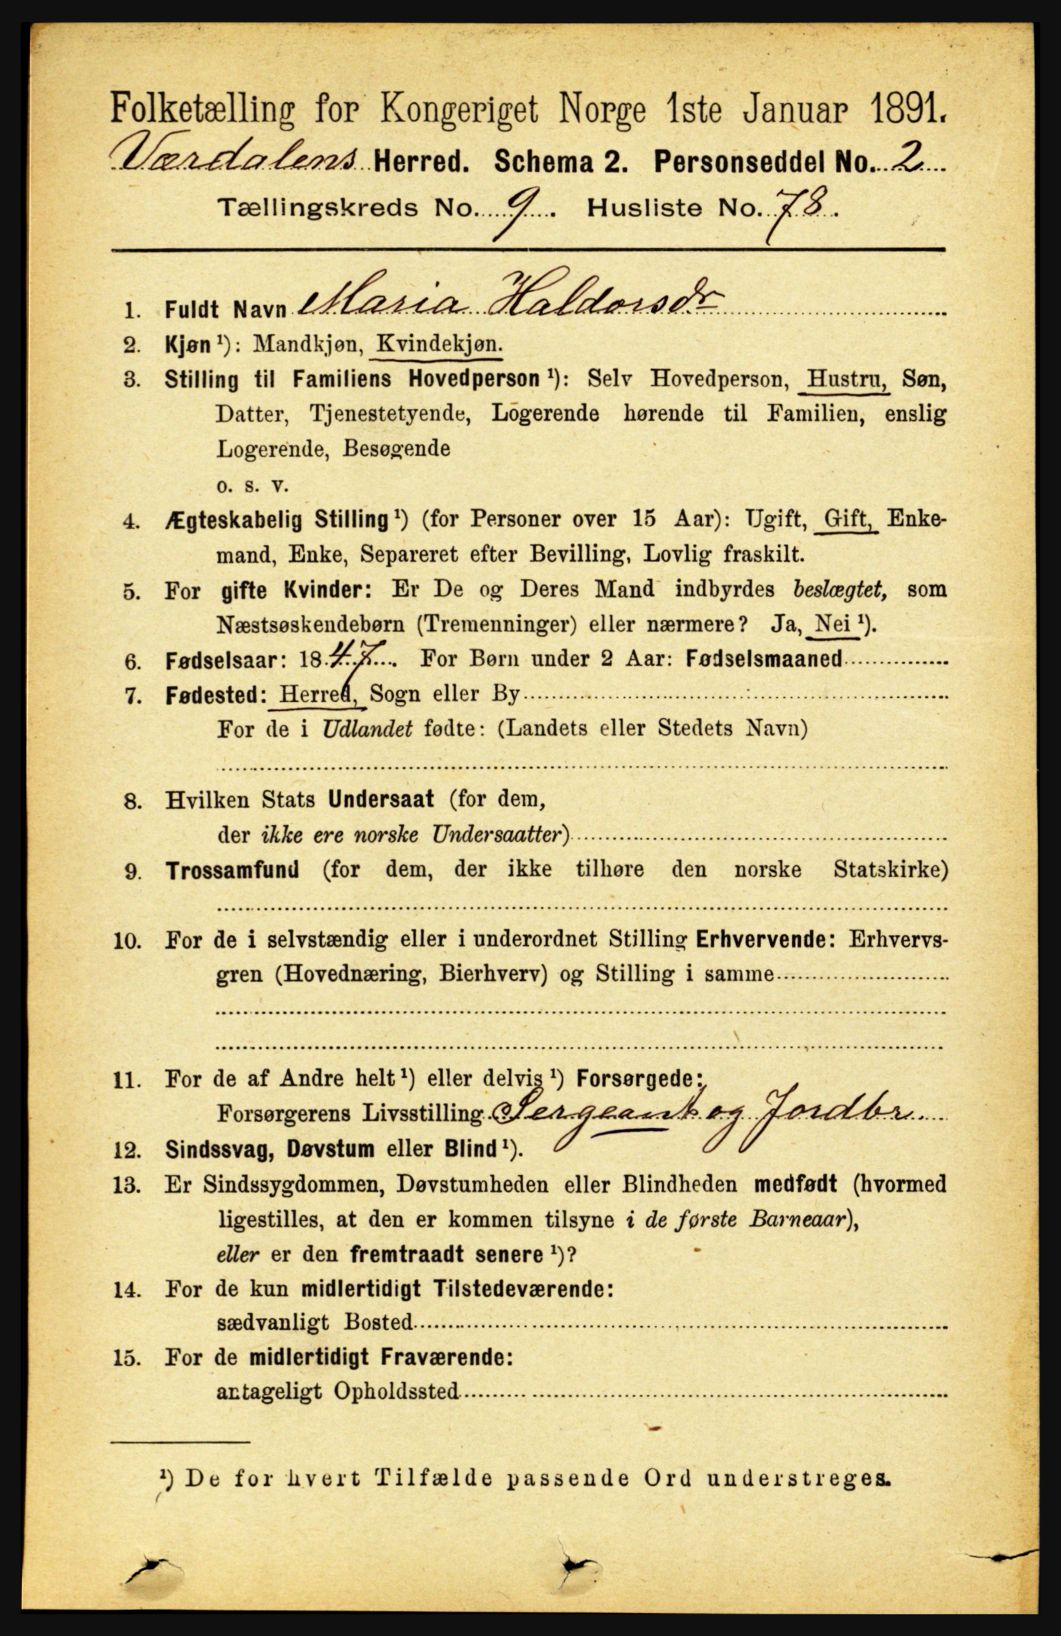 Folketælling for Kongeriget Norge 1ste Januar 1891.
Værdalens Herred. Schema 2. Personseddel No. 2
Tællingskreds No. 9. Husliste No. 78.
1. Fuldt Navn Maria Haldorsdr
2. Kjøn ¹): Mandkjøn, Kvindekjøn.
3. Stilling til Familiens Hovedperson ¹): Selv Hovedperson, Hustru, Søn,
Datter, Tjenestetyende, Logerende hørende til Familien, enslig
Logerende, Besøgende
o. s. v.
4. Ægteskabelig Stilling ¹) (for Personer over 15 Aar): Ugift, Gift, Enke-
mand, Enke, Separeret efter Bevilling, Lovlig fraskilt.
5. For gifte Kvinder: Er De og Deres Mand indbyrdes beslægtet, som
Næstsøskendebørn (Tremenninger) eller nærmere? Ja, Nei ¹).
6. Fødselsaar: 1847. For Børn under 2 Aar: Fødselsmaaned
7. Fødested: Herred, Sogn eller By
For de i Udlandet fødte: (Landets eller Stedets Navn)
8. Hvilken Stats Undersaat (for dem,
der ikke ere norske Undersaatter)
9. Trossamfund (for dem, der ikke tilhøre den norske Statskirke)
10. For de i selvstændig eller i underordnet Stilling Erhvervende: Erhvervs-
gren (Hovednæring, Bierhverv) og Stilling i samme
11. For de af Andre helt ¹) eller delvis ¹) Forsørgede:
Forsørgerens Livsstilling Sergeant og Jordbr.
12. Sindssvag, Døvstum eller Blind ¹).
13. Er Sindssygdommen, Døvstumheden eller Blindheden medfødt (hvormed
ligestilles, at den er kommen tilsyne i de første Barneaar),
eller er den fremtraadt senere ¹)?
14. For de kun midlertidigt Tilstedeværende:
sædvanligt Bosted
15. For de midlertidigt Fraværende:
antageligt Opholdssted
¹) De for hvert Tilfælde passende Ord understreges.